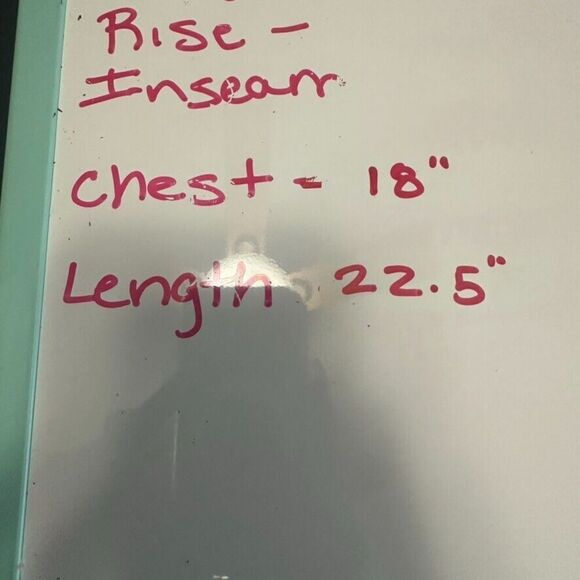 Rise -
Inseam
Chest - 18"
Length 22.5"